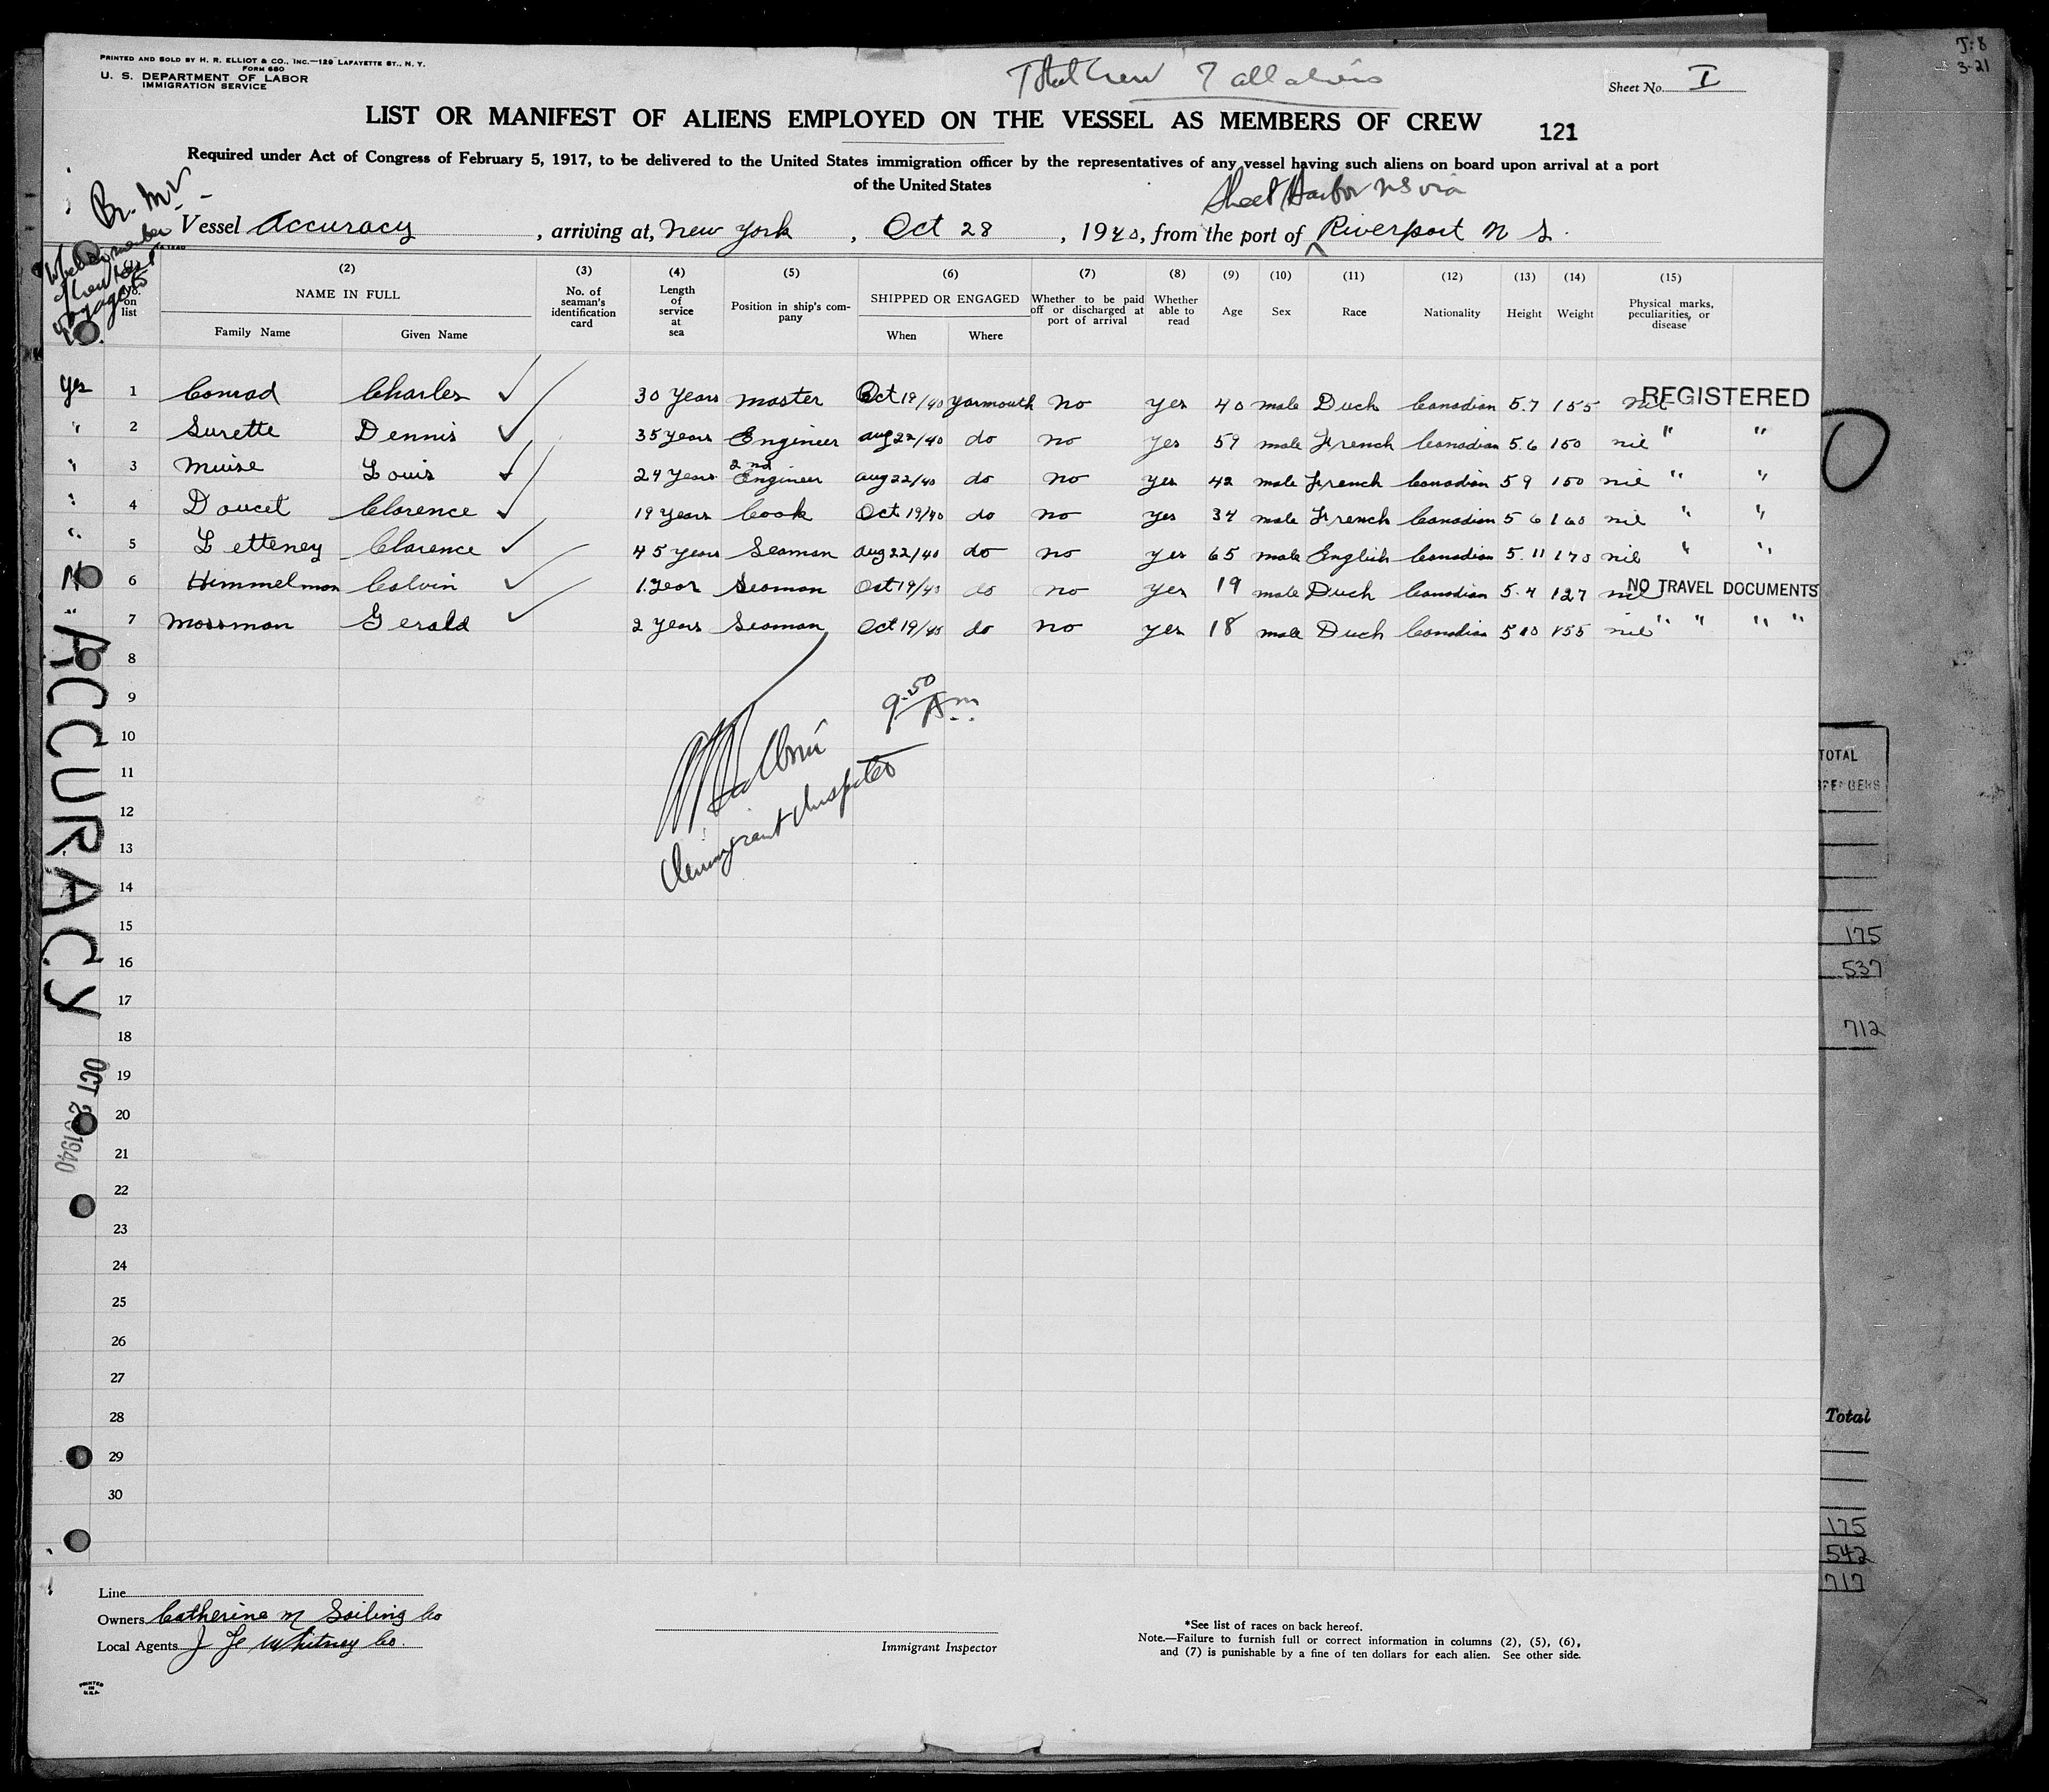 J:8
3-21
PRINTED AND SOLD BY H. R. ELLIOT & CO., INC.—129 LAFAYETTE ST., N. Y.
FORM 680
U. S. DEPARTMENT OF LABOR
IMMIGRATION SERVICE
Total Crew 7 all aliens
Sheet No. I
LIST OR MANIFEST OF ALIENS EMPLOYED ON THE VESSEL AS MEMBERS OF CREW
121
Required under Act of Congress of February 5, 1917, to be delivered to the United States immigration officer by the representatives of any vessel having such aliens on board upon arrival at a port
of the United States
Br. M.V.
Sheet Harbor NS via
Vessel Accuracy, arriving at, New York, Oct 28, 1940, from the port of Riverport N S.
(2) (3) (4) (5) (6) (7) (8) (9) (10) (11) (12) (13) (14) (15)
No. on list
NAME IN FULL
Family Name Given Name
No. of seaman's identification card
Length of service at sea
Position in ship's company
SHIPPED OR ENGAGED
When Where
Whether to be paid off or discharged at port of arrival
Whether able to read
Age Sex Race Nationality Height Weight
Physical marks, peculiarities, or disease
Yes 1 Conrad Charles ✓ 30 Years Master Oct 19/40 Yarmouth No Yes 40 male Duch Canadian 5.7 155 nil REGISTERED
" 2 Surette Dennis ✓ 35 years Engineer Aug 22/40 do no yes 59 male French Canadian 5.6 150 nil " "
" 3 Muise Louis ✓ 24 Years 2nd Engineer Aug 22/40 do no yes 42 male French Canadian 5 9 150 nil " "
" 4 Doucet Clarence ✓ 19 Years Cook Oct 19/40 do no yes 34 male French Canadian 5 6 160 nil " "
" 5 Letteney Clarence ✓ 45 years Seaman Aug 22/40 do no yes 65 male English Canadian 5.11 170 nil " "
No 6 Himmelman Calvin ✓ 1 Year Seaman Oct 19/40 do no yes 19 male Duch Canadian 5.4 127 nil NO TRAVEL DOCUMENTS
" 7 Mossman Gerald ✓ 2 years Seaman Oct 19/40 do no yes 18 male Duch Canadian 5 10 155 nil " " " "
8
9
9.50 A.m.
10
11
Immigrant Inspector
12
13
14
15
16
17
18
19
20
21
22
23
24
25
26
27
28
29
30
ACCURACY
OCT 1940
Line
Owners Catherine M Sailing Co
Local Agents J F Whitney Co.
Immigrant Inspector
*See list of races on back hereof.
Note.—Failure to furnish full or correct information in columns (2), (5), (6),
and (7) is punishable by a fine of ten dollars for each alien. See other side.
PRINTED IN U.S.A.
TOTAL
175
537
712
Total
175
542
717